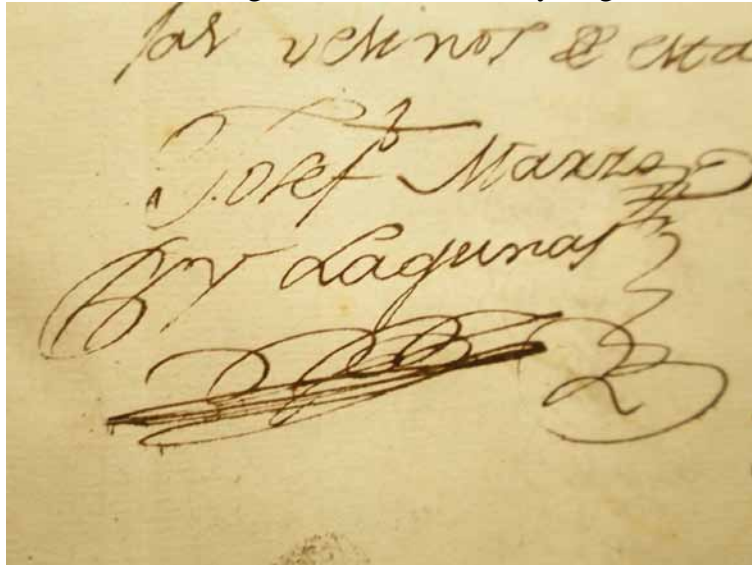 por vesinos de esta
Josef Marzo
y Lagunas